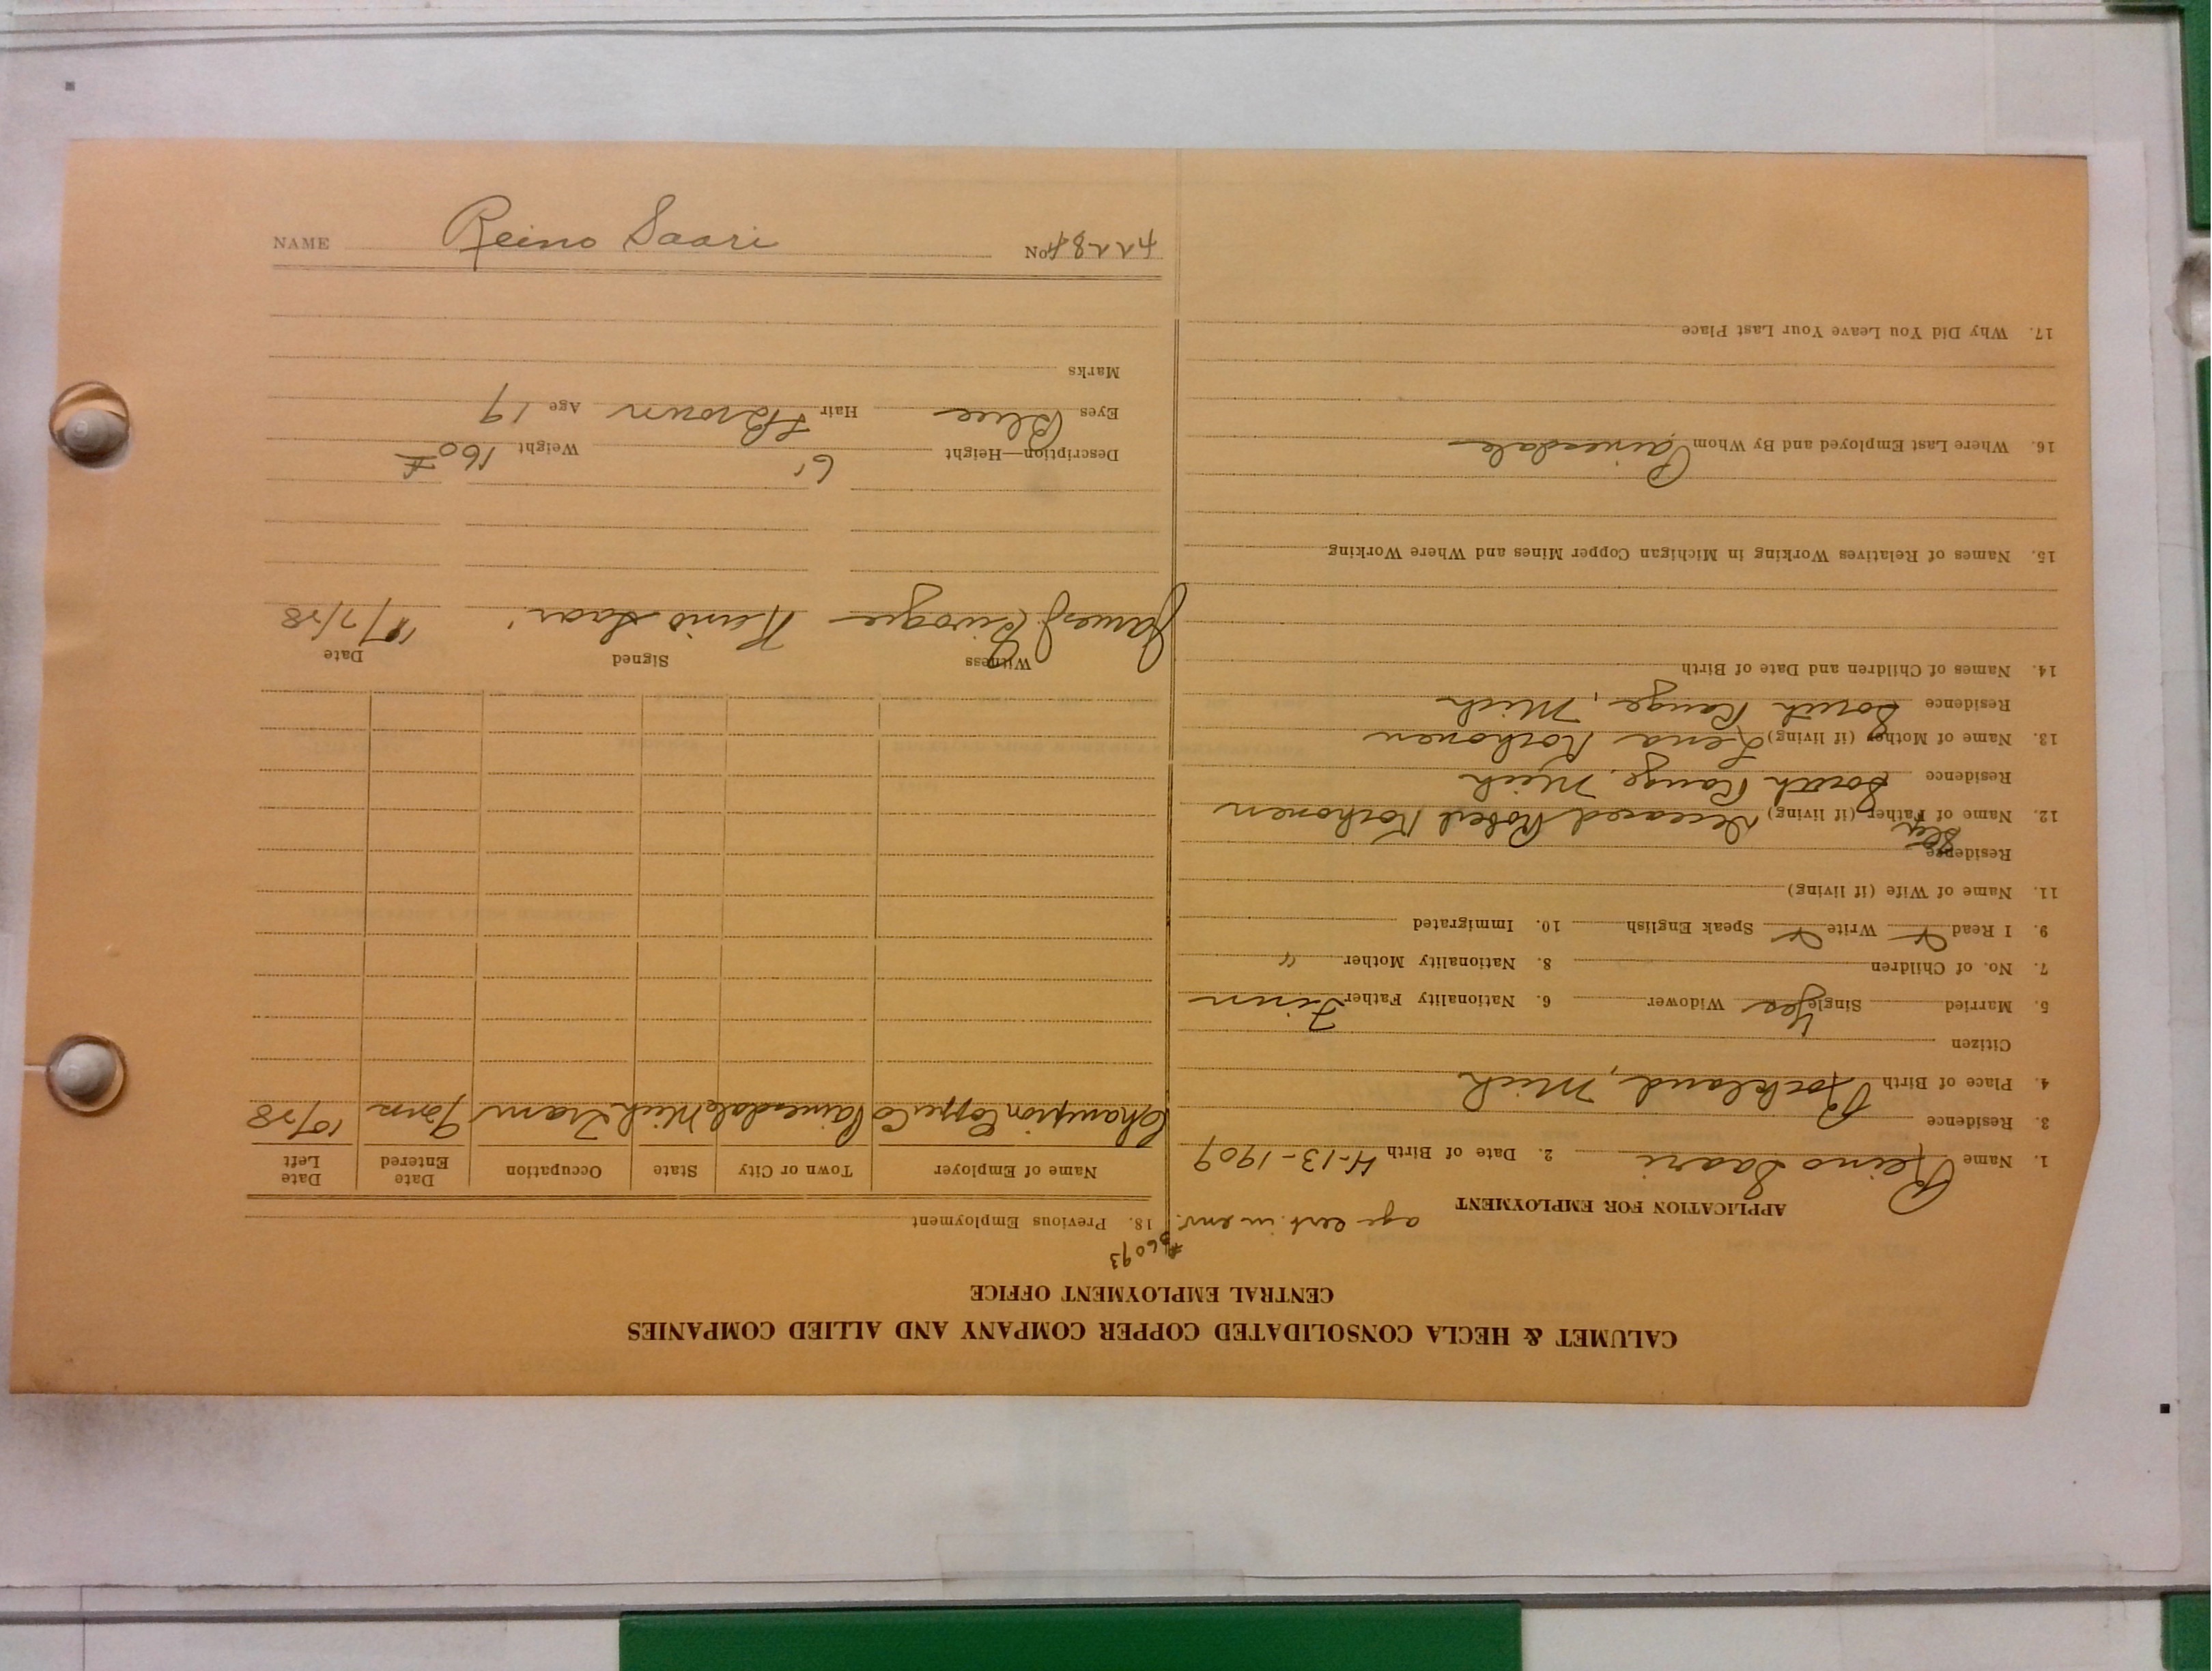 CALUMET & HECLA CONSOLIDATED COPPER COMPANY AND ALLIED COMPANIES
CENTRAL EMPLOYMENT OFFICE
APPLICATION FOR EMPLOYMENT age cert. in env. #36093
1. Name Reino Saari 2. Date of Birth 4-13-1909
3. Residence
4. Place of Birth Rockland, Mich
Citizen
5. Married Single Yes Widower 6. Nationality Father Finn
7. No. of Children 8. Nationality Mother "
9. I Read Write Speak English 10. Immigrated
11. Name of Wife (if living)
Residence
12. Name of Step Father (if living) Deceased Robert Korhonen
Residence South Range, Mich
13. Name of Mother (if living) Lena Korhonen
Residence South Range, Mich
14. Names of Children and Date of Birth
15. Names of Relatives Working in Michigan Copper Mines and Where Working
16. Where Last Employed and By Whom Painesdale
17. Why Did You Leave Your Last Place
18. Previous Employment
Name of Employer Town or City State Occupation Date Entered Date Left
Champion Copper Co Painesdale Mich Tram 10/28
Witness Signed Date
James J. Reino Saari /7/28
Description—Height 6' Weight 160#
Eyes Blue Hair Brown Age 19
Marks
NAME Reino Saari No.